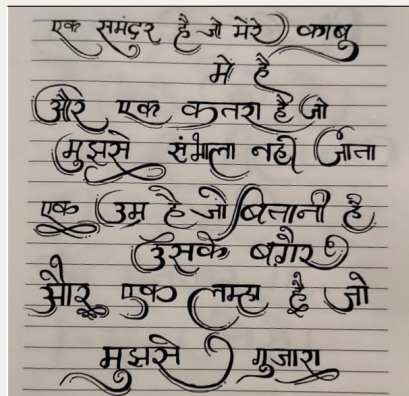 एक समंदर है जो मेरे काबु
में है
और एक कतरा है जो
मुझसे संभाला नही जाता
एक उम्र है जो बितानी है
उसके बग़ैर
और एक लम्हा है जो
मुझसे गुजारा